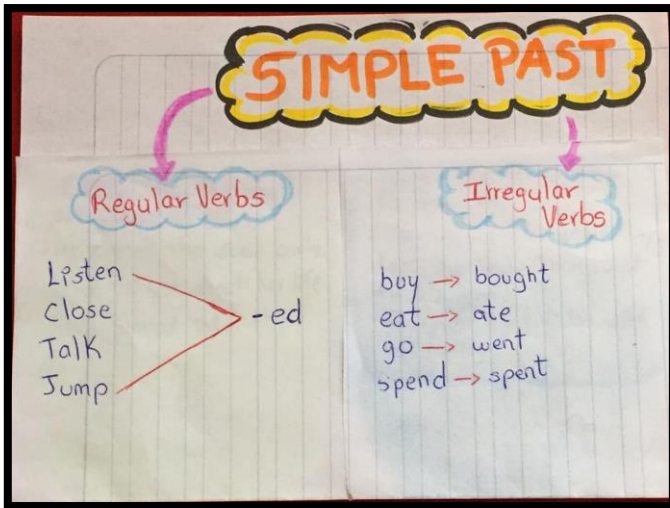 SIMPLE PAST
Regular Verbs
Listen
Close
Talk
Jump
-ed
Irregular
Verbs
buy → bought
eat → ate
go → went
spend → spent